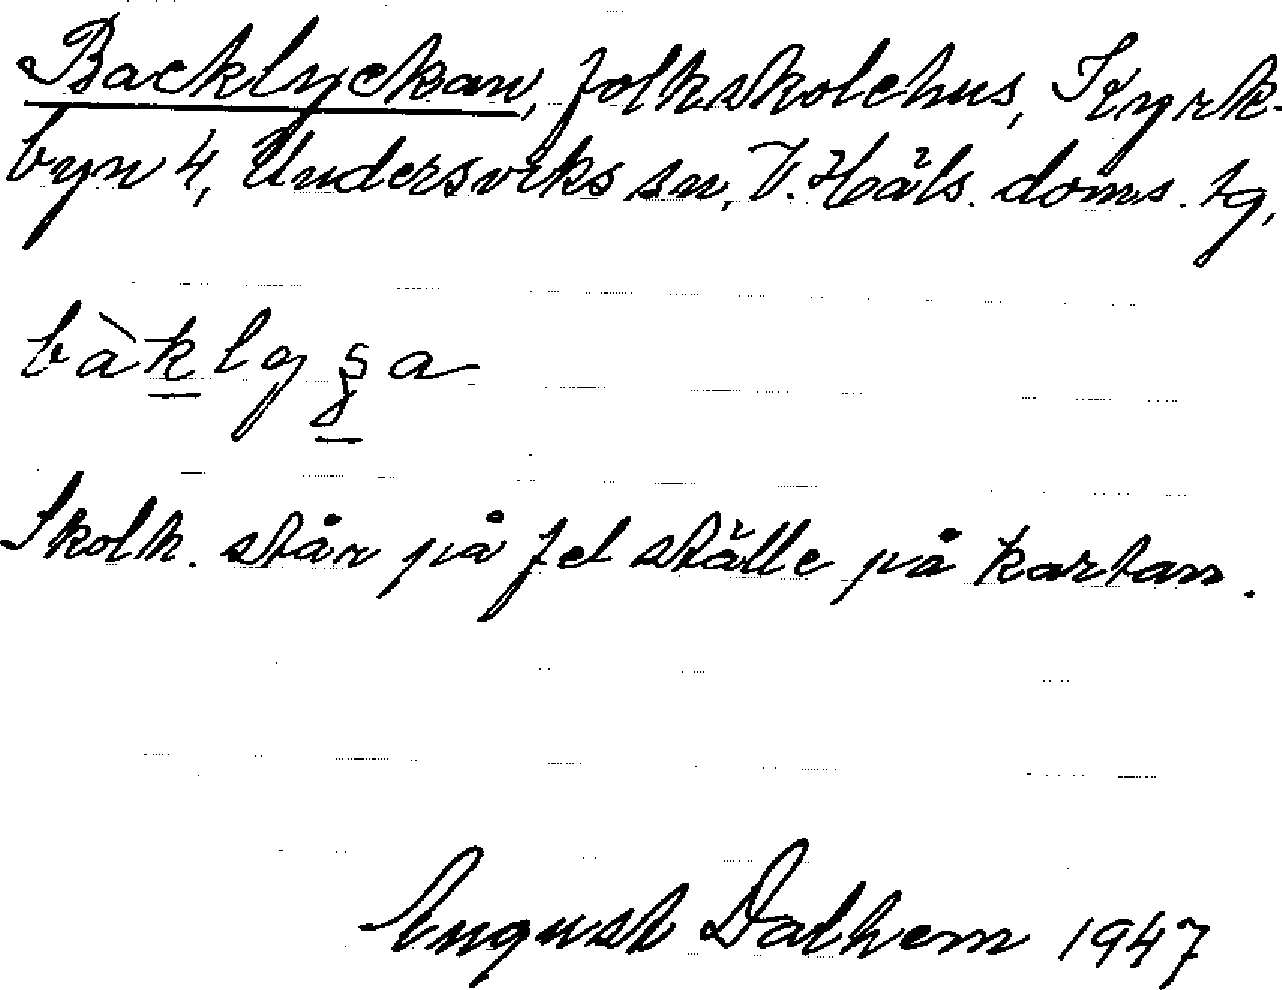 Backlyckan, folkskolehus, Kyrk-
byn 4, Undersviks sn, V. Häls. doms. tg,
Skolh. står på fel ställe på kartan.
August Dalhem 1947